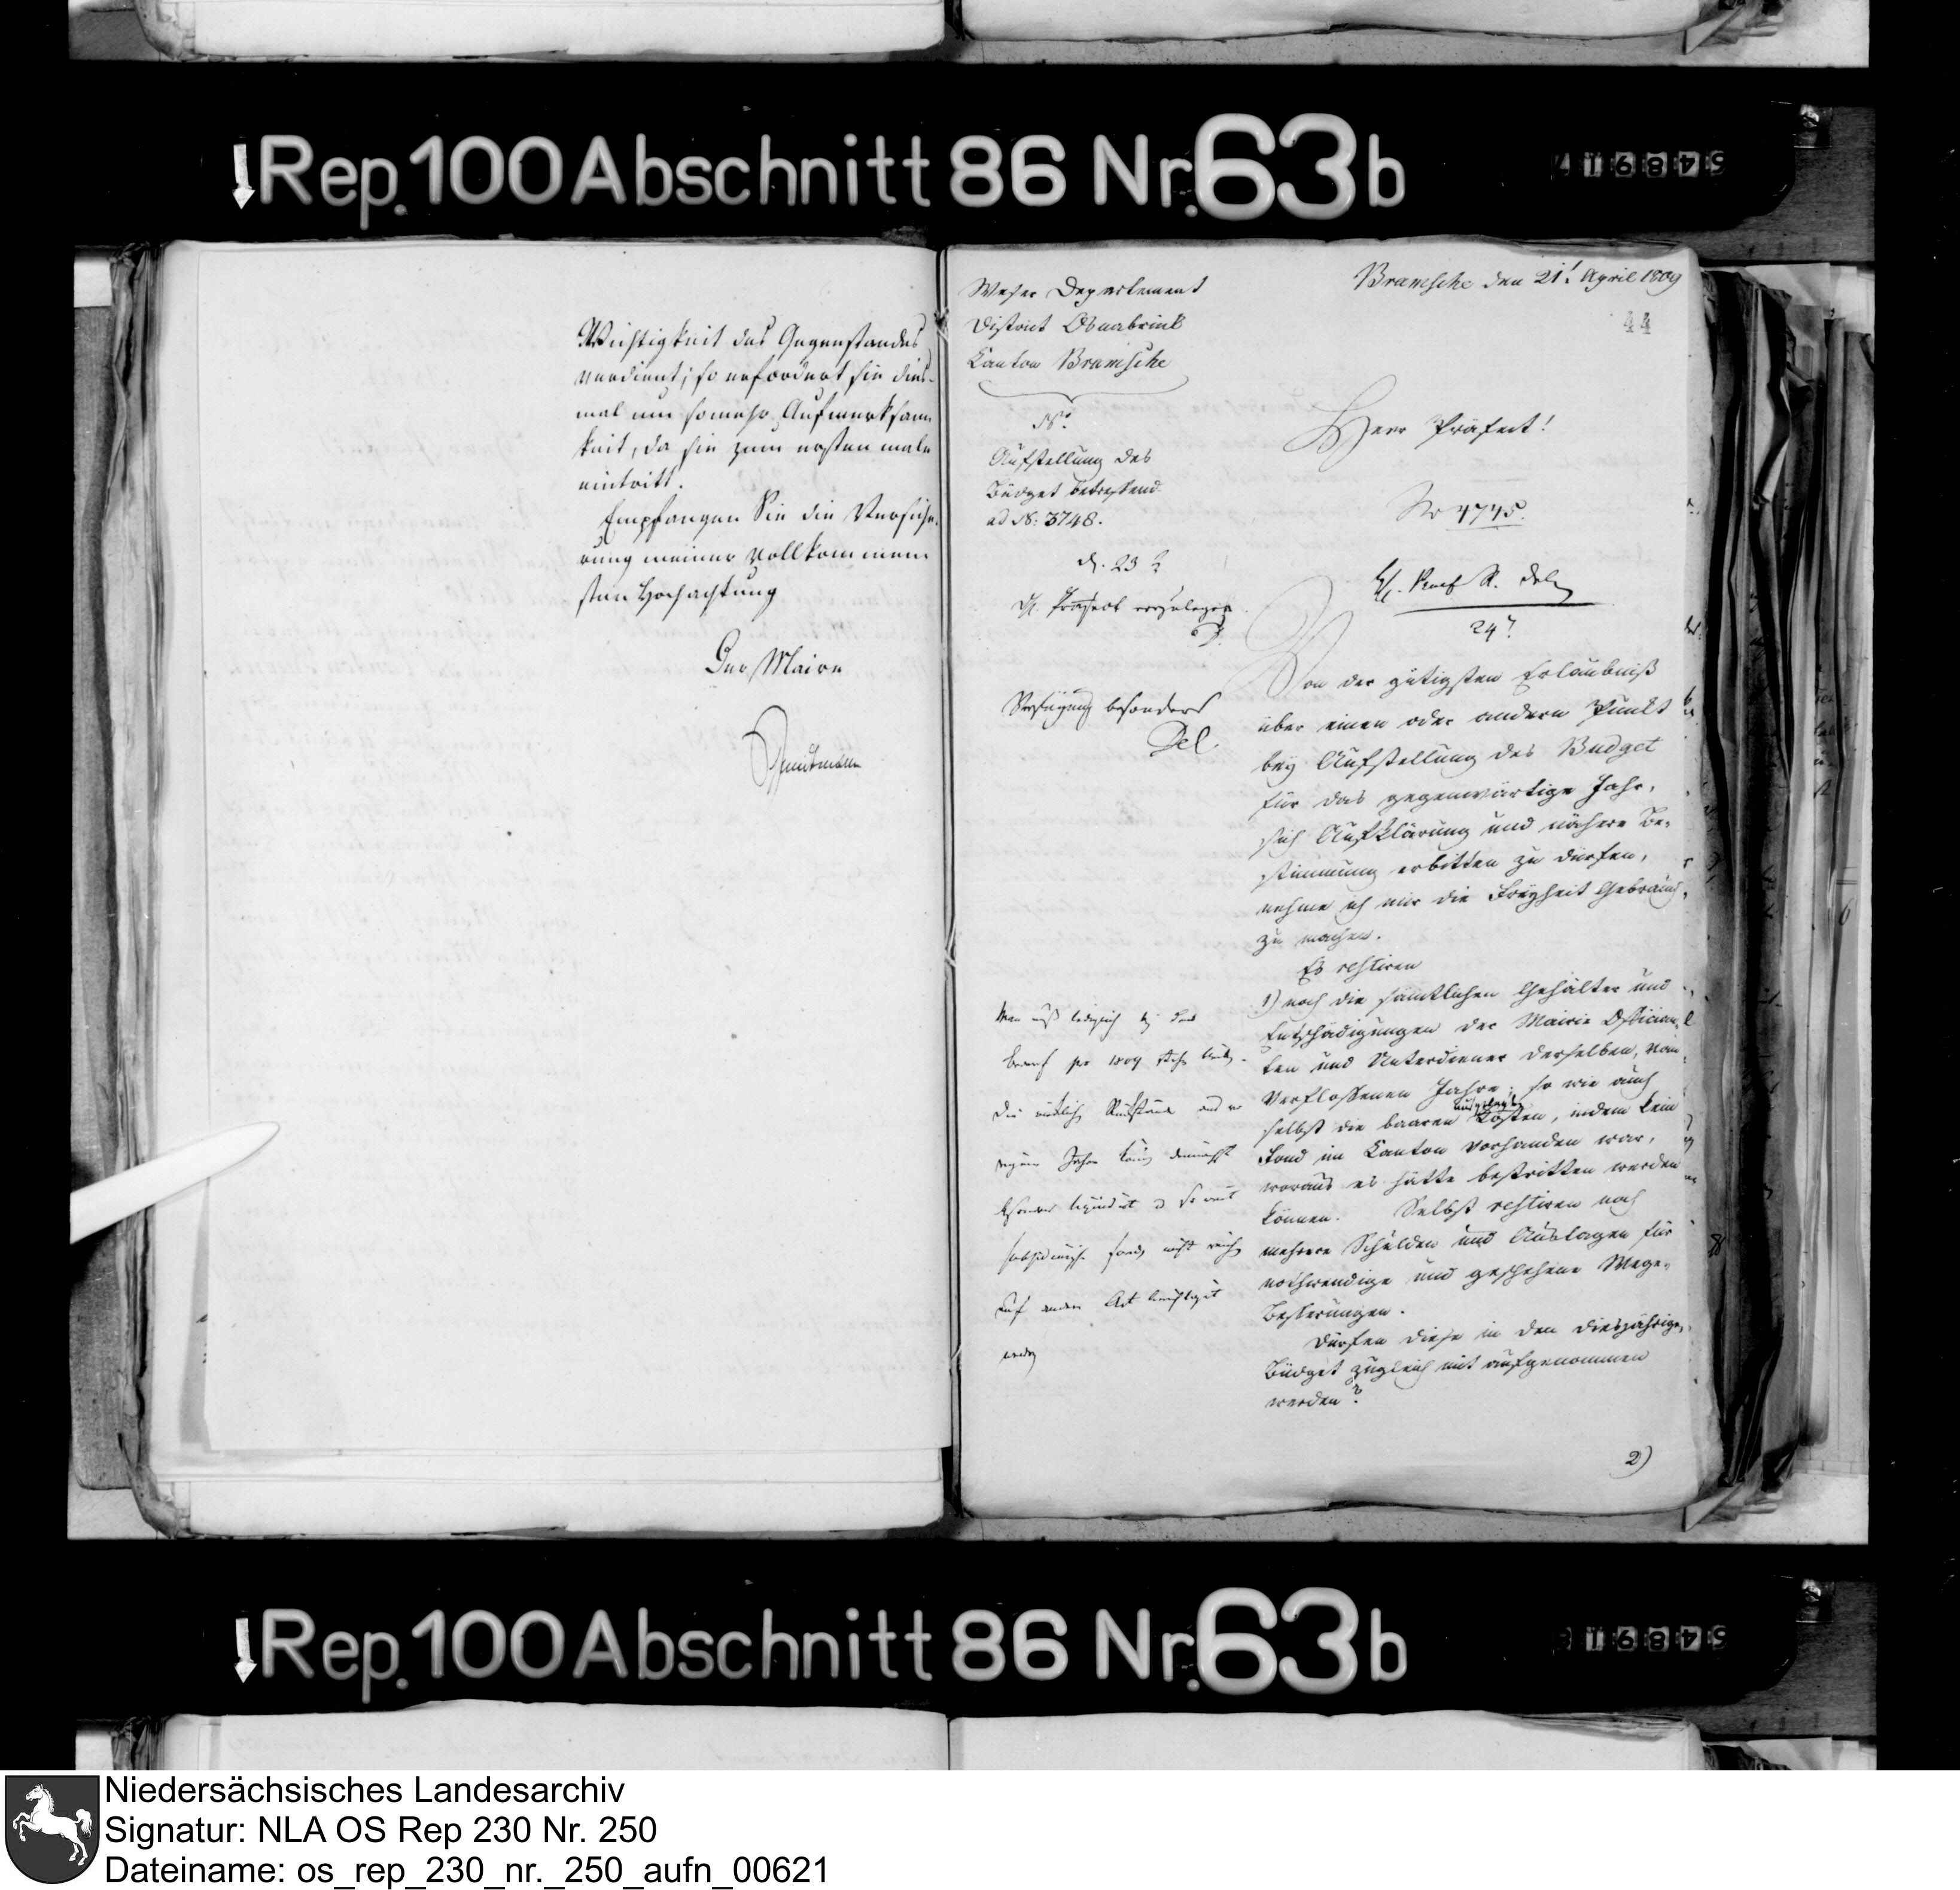 Rep. 100 Abschnitt 86 Nr. 63b
54891
Wichtigkeit des Gegenstandes
verdient; so erfordert sie dies-
mal um somehr Aufmerksam
keit, da sie zum ersten male
eintritt.
Empfangen Sie die Versiche-
rung meiner vollkommen
sten Hochachtung
Der Maire
Weser Departement
District Osnabrück
Canton Bramsche
No
Aufstellung des
Budget betreffend
ad N: 3748.
d. 23
H. Präfect vorzulegen
Verfügung besonders
Del
Man muß lediglich bey dem
Bedarf pro 1809 stehn bleiben.
Die rückstände
Jahre
besonders liquidirt
fonds nicht reichen
auf andere Art berichtigt
werden
Bramsche den 21t April 1809
44
Herr Präfect!
No 4745.
24
Von der gütigsten Erlaubniß
über einen oder andern Punkt
bey Aufstellung des Budget
für das gegenwärtige Jahr,
sich Aufklärung und nähere Be-
stimmung erbitten zu dürfen,
nehme ich mir die Freyheit Gebrauch
zu machen.
Es restiren
1) noch die sämtlichen Gehälter und
Entschädigungen der Mairie Offician-
ten und Unterdiener derselben, vom
verflossenen Jahre; so wie auch
ausgelegte
selbst die baaren Kosten, indem kein
Fond im Canton vorhanden war,
woraus es hätte bestritten werden
können. Selbst restiren noch
mehrere Schulden und Auslagen für
nothwendige und geschehene Wege-
besserungen.
Dürfen diese in den diesjährigen
Budget zugleich mit aufgenommen
werden?
2)
Rep. 100 Abschnitt 86 Nr. 63b
54891
Niedersächsisches Landesarchiv
Signatur: NLA OS Rep 230 Nr. 250
Dateiname: os_rep_230_nr._250_aufn_00621